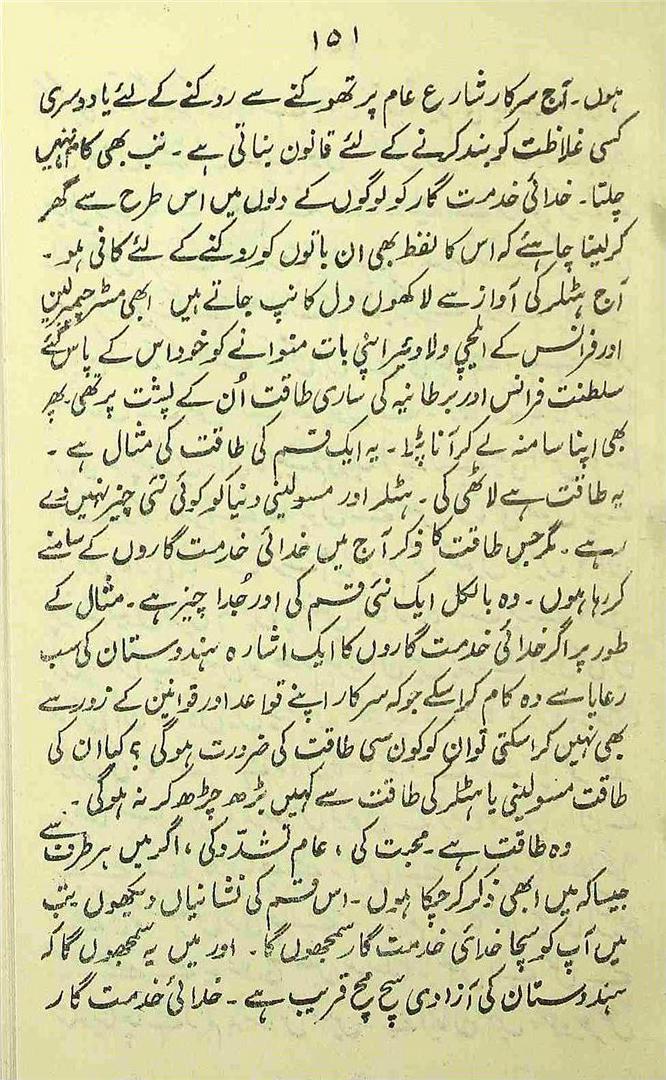 ۱۵۱
ہوں۔ آج سرکار شارع عام پر تھوکنے سے روکنے کے لئے یا دوسری
کسی غلاظت کو بند کرنے کے لئے قانون بناتی ہے۔ تب بھی کام نہیں
چلتا۔ خدائی خدمت گار کو لوگوں کے دلوں میں اس طرح سے گھر
کر لینا چاہئے کہ اس کا لفظ بھی ان باتوں کو روکنے کے لئے کافی ہو۔
آج ہٹلر کی آواز سے لاکھوں دل کانپ جاتے ہیں ابھی مسٹر چیمبرلین
اور فرانس کے ایلچی ولادئیر اپنی بات منوانے کو خود اس کے پاس گئے
سلطنت فرانس اور برطانیہ کی ساری طاقت اُن کے پشت پر تھی۔ پھر
بھی اپنا سا منہ لے کر آنا پڑا۔ یہ ایک قسم کی طاقت کی مثال ہے۔
یہ طاقت ہے لاٹھی کی۔ ہٹلر اور مسولینی دنیا کو کوئی نئی چیز نہیں دے
رہے۔ مگر جس طاقت کا ذکر آج میں خدائی خدمت گاروں کے سامنے
کر رہا ہوں۔ وہ بالکل ایک نئی قسم کی اور جُدا چیز ہے۔ مثال کے
طور پر اگر خدائی خدمت گاروں کا ایک اشارہ ہندوستان کی سب
رعایا سے وہ کام کرا سکے جو کہ سرکار اپنے قواعد اور قوانین کے زور سے
بھی نہیں کرا سکتی تو ان کو کون سی طاقت کی ضرورت ہو گی؟ کیا ان کی
طاقت مسولینی یا ہٹلر کی طاقت سے کہیں بڑھ چڑھ کر نہ ہو گی۔
وہ طاقت ہے۔ محبت کی، عام تشدّد کی، اگر میں ہر طرف سے
جیسا کہ میں ابھی ذکر کر چکا ہوں۔ اس قسم کی نشانیاں دیکھوں تب
میں آپ کو سچا خدائی خدمت گار سمجھوں گا۔ اور میں یہ سمجھوں گا کہ
ہندوستان کی آزادی سچ مچ قریب ہے۔ خدائی خدمت گار